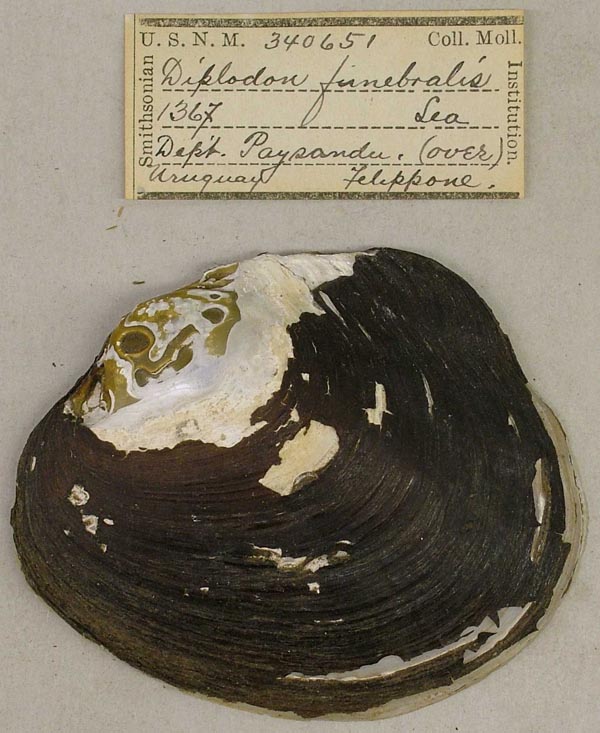 U. S. N. M. 340651 Coll. Moll.
Smithsonian
Institution.
Diplodon funebralis
1367 Lea
Dept. Paysandu. (over)
Uruguay Felippone.